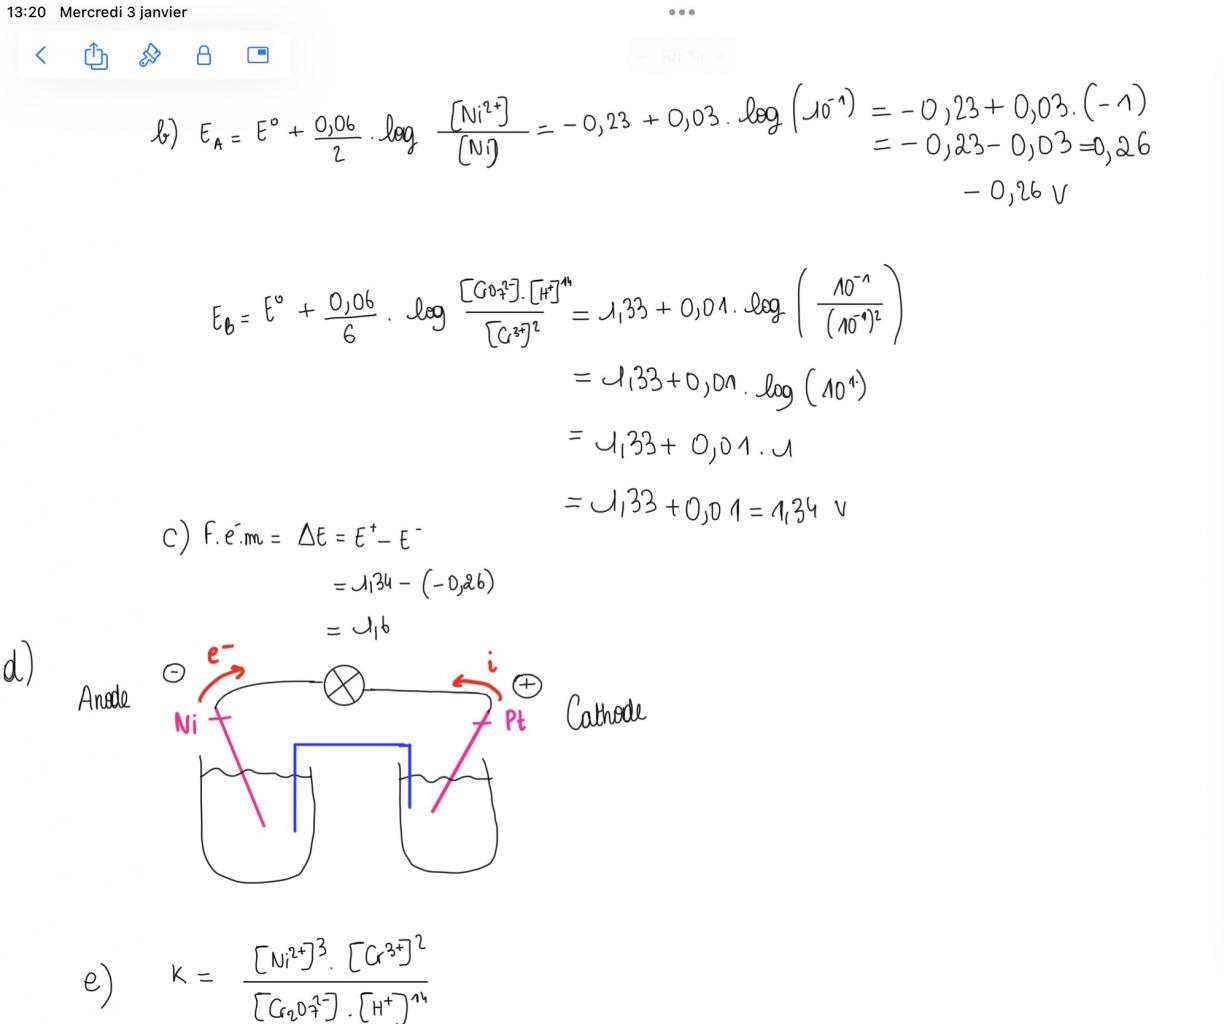 13:20 Mercredi 3 janvier
b) E_A = E° + 0,06/2 . log [Ni²⁺]/[Ni] = -0,23 + 0,03 . log (10⁻¹) = -0,23 + 0,03 . (-1)
= -0,23 - 0,03 = 0,26
- 0,26 V
E_B = E° + 0,06/6 . log [CrO₇²⁻] . [H⁺]¹⁴/[Cr³⁺]² = 1,33 + 0,01 . log (10⁻¹/(10⁻¹)²)
= 1,33 + 0,01 . log (10¹)
= 1,33 + 0,01 . 1
= 1,33 + 0,01 = 1,34 V
c) F.é.m = ΔE = E⁺ - E⁻
= 1,34 - (-0,26)
= 1,6
d)
e⁻
i
-
+
Anode
Ni
Pt
Cathode
e) K = [Ni²⁺]³ . [Cr³⁺]²/[Cr₂O₇²⁻] . [H⁺]¹⁴